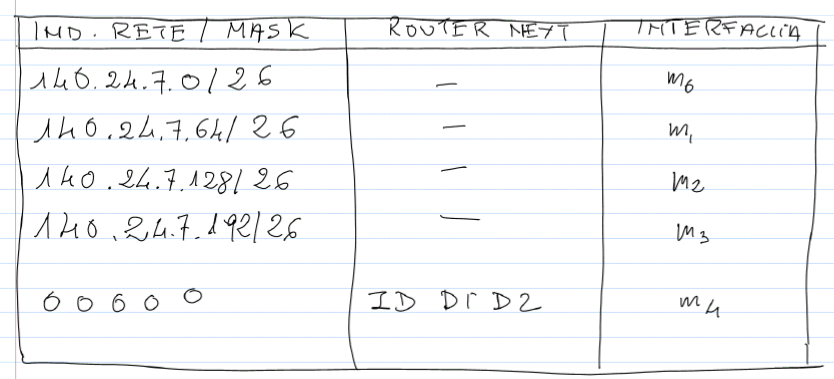 IND. RETE / MASK ROUTER NEXT INTERFACCIA
140.24.7.0/26 — m0
140.24.7.64/26 — m1
140.24.7.128/26 — m2
140.24.7.192/26 — m3
0 0 0 0 0 ID DI D2 m4